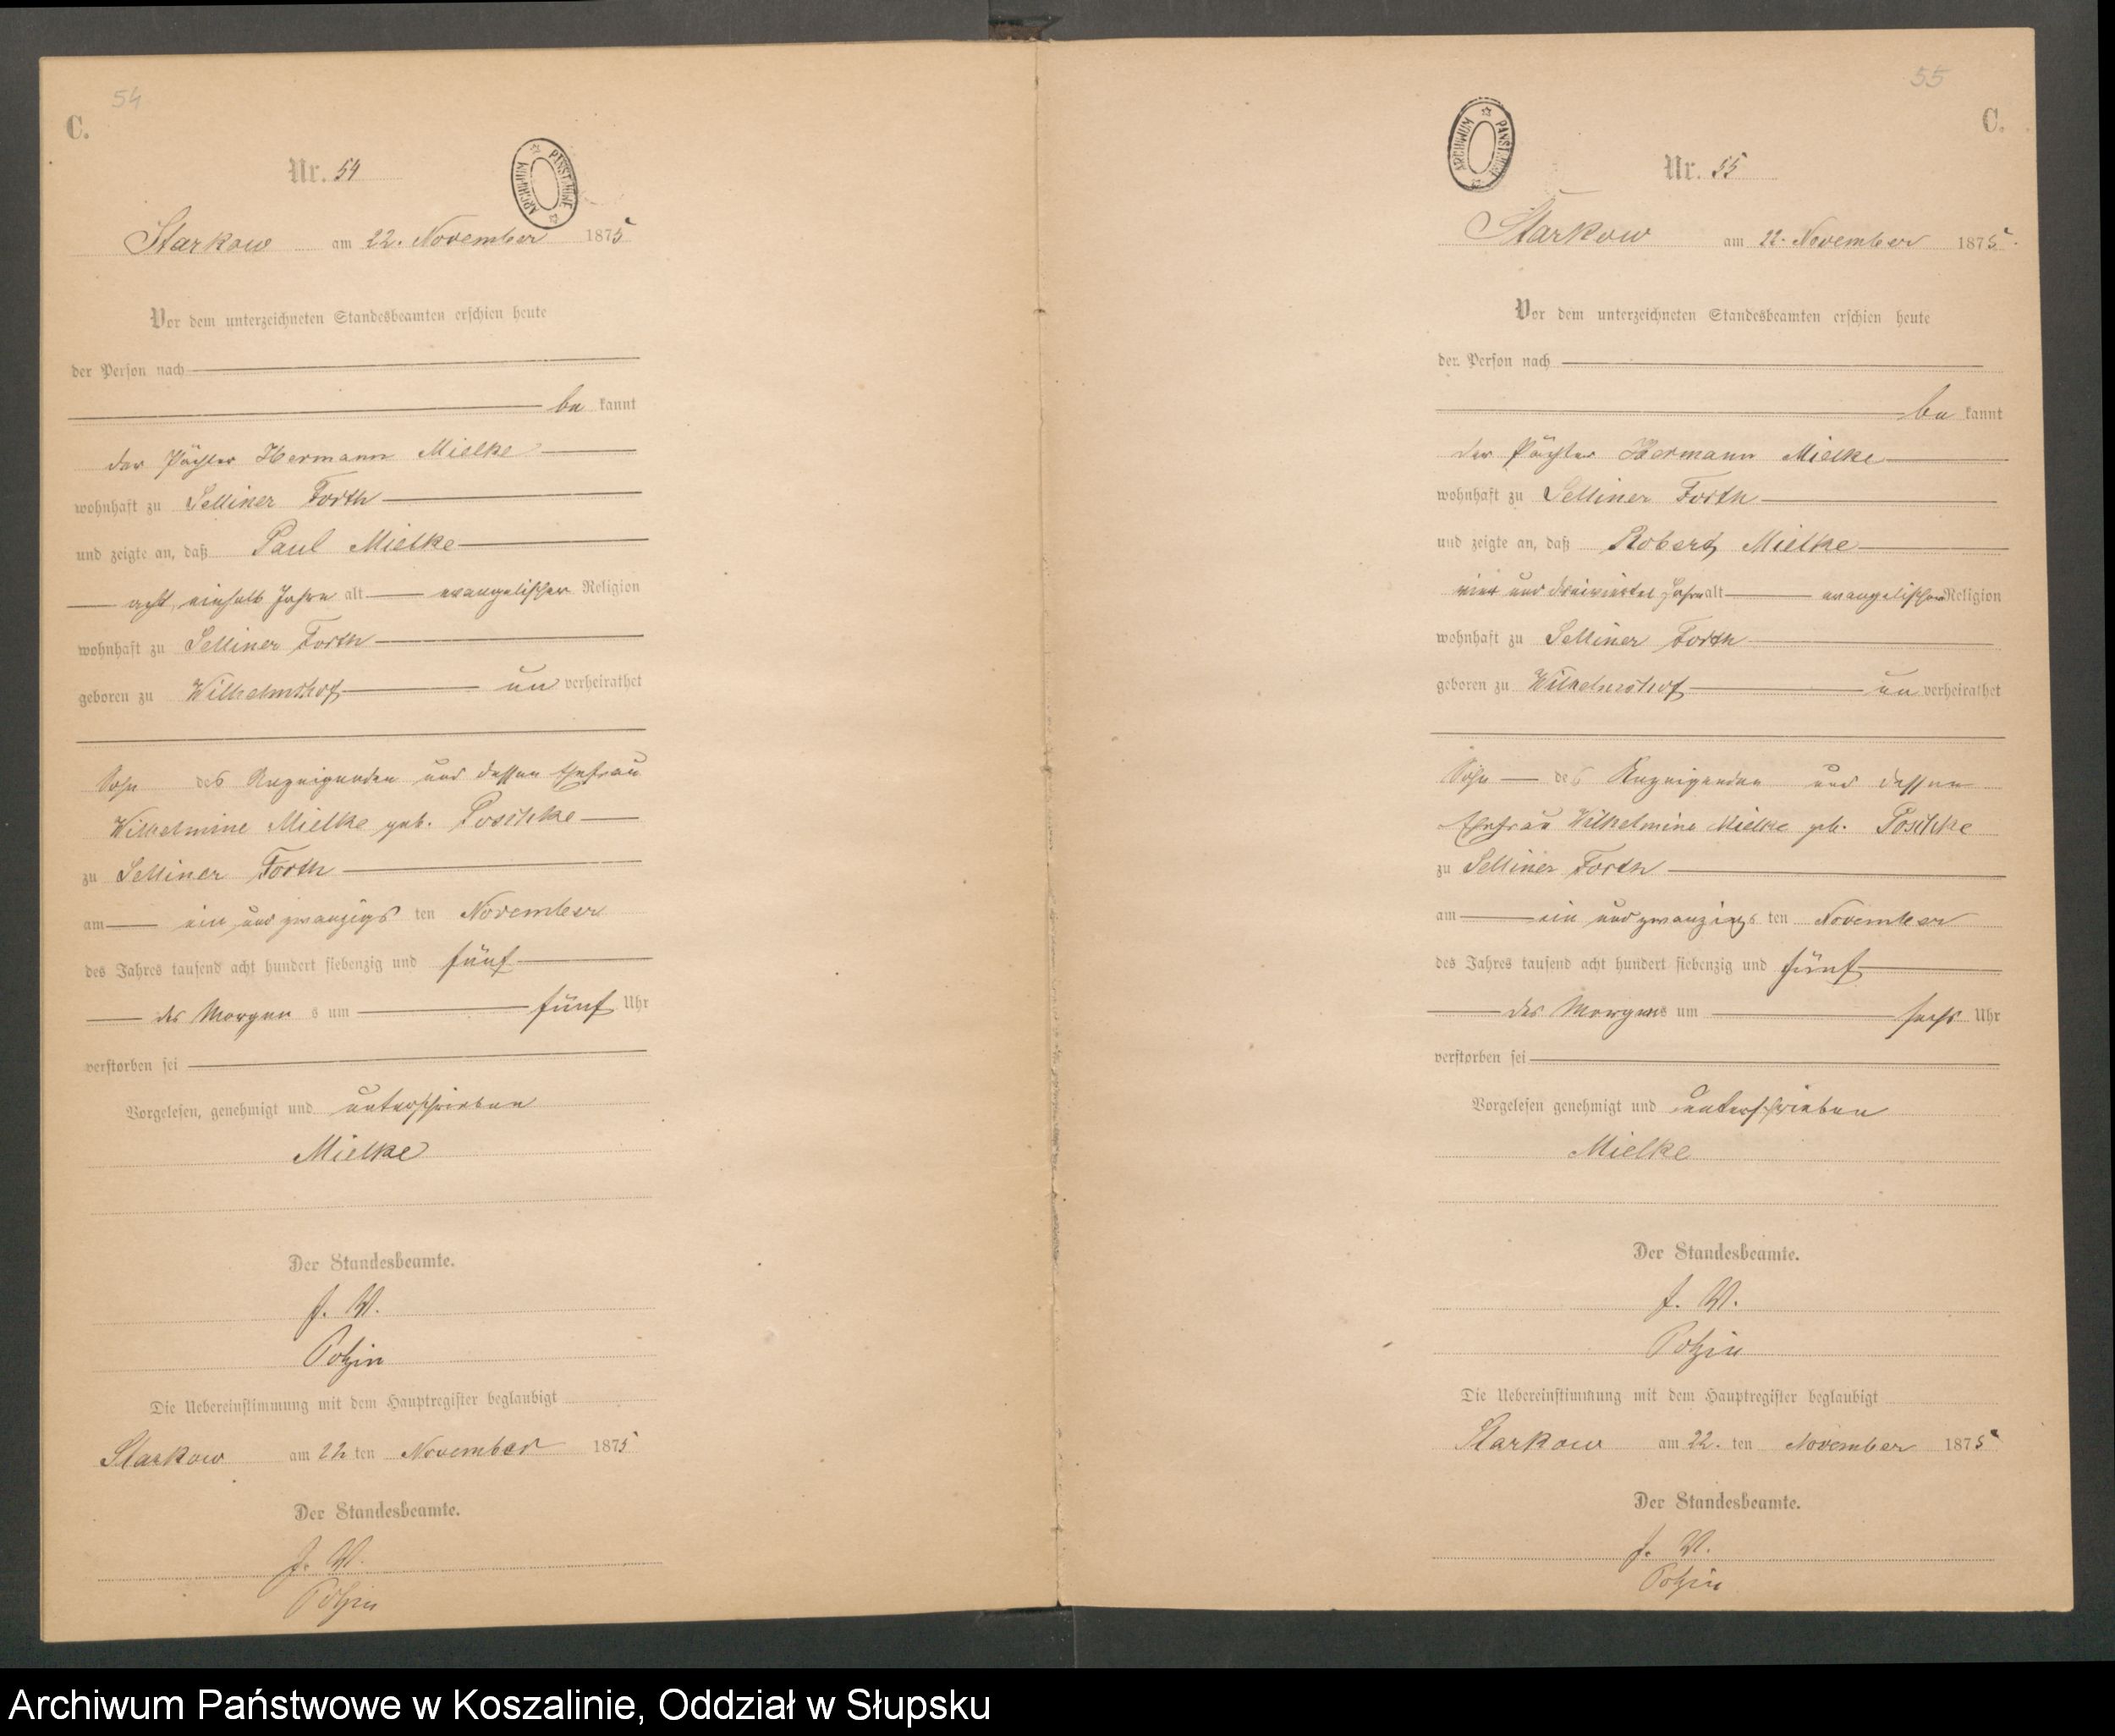 54
C.
Nr. 54
ARCHIWUM PAŃSTWOWE
Starkow am 22. November 1875
Vor dem unterzeichneten Standesbeamten erschien heute
der Person nach
be kannt
der Pächter Hermann Mielke
wohnhaft zu Selliner Forth
und zeigte an, daß Paul Mielke
acht, einhalb Jahre alt evangelischer Religion
wohnhaft zu Selliner Forth
geboren zu Wilhelmshof un verheirathet
Sohn des Anzeigenden und dessen Ehefrau
Wilhelmine Mielke geb. Poschke
zu Selliner Forth
am ein und zwanzigs ten November
des Jahres tausend acht hundert siebenzig und fünf
des Morgen s um fünf Uhr
verstorben sei
Vorgelesen, genehmigt und unterschrieben
Mielke
Der Standesbeamte.
J. V.
Potzin
Die Uebereinstimmung mit dem Hauptregister beglaubigt
Starkow am 22 ten November 1875
Der Standesbeamte.
J. V.
Potzin
55
C.
ARCHIWUM PAŃSTWOWE
Nr. 55
Starkow am 22. November 1875.
Vor dem unterzeichneten Standesbeamten erschien heute
der Person nach
be kannt
der Pächter Hermann Mielke
wohnhaft zu Selliner Forth
und zeigte an, daß Robert Mielke
vier und dreiviertel Jahr alt evangelischer Religion
wohnhaft zu Selliner Forth
geboren zu Wilhelmshof un verheirathet
Sohn des Anzeigenden und dessen
Ehefrau Wilhelmine Mielke geb. Poschke
zu Selliner Forth
am ein und zwanzigs ten November
des Jahres tausend acht hundert siebenzig und fünf
des Morgens um sechs Uhr
verstorben sei
Vorgelesen genehmigt und unterschrieben
Mielke
Der Standesbeamte.
J. V.
Potzin
Die Uebereinstimmung mit dem Hauptregister beglaubigt
Starkow am 22. ten November 1875
Der Standesbeamte.
J. V.
Potzin
Archiwum Państwowe w Koszalinie, Oddział w Słupsku